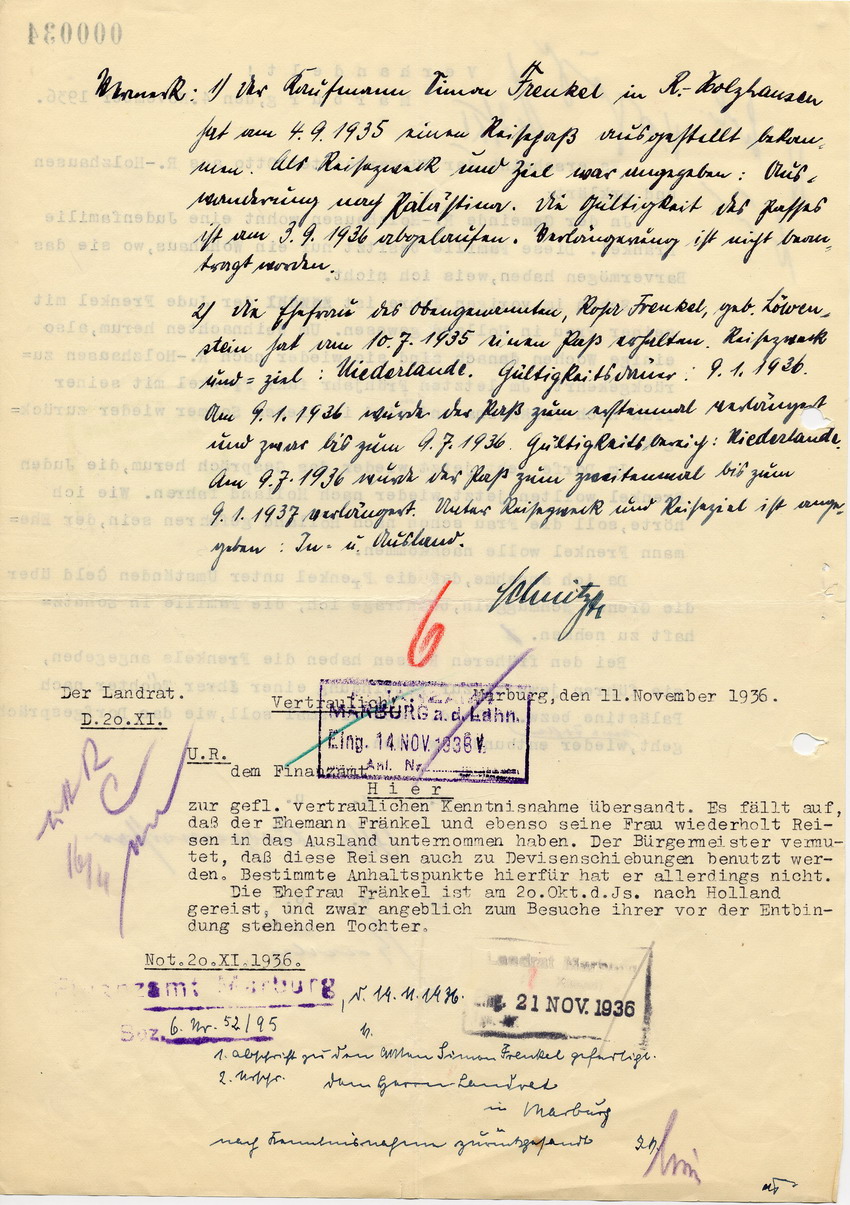 000034
Vermerk: 1) Der Kaufmann Simon Frenkel in R.-Holzhausen
hat am 4.9.1935 einen Reisepaß ausgestellt bekom-
men. Als Reisezweck und Ziel war angegeben: Aus-
wanderung nach Palästina. Die Gültigkeit des Passes
ist am 3.9.1936 abgelaufen. Verlängerung ist nicht bean-
tragt worden.
2) Die Ehefrau des Obengenannten, Rosa Frenkel, geb. Löwen-
stein hat am 10.7.1935 einen Paß erhalten. Reisezweck
und =ziel: Niederlande. Gültigkeitsdauer: 9.1.1936.
Am 9.1.1936 wurde der Paß zum erstenmal verlängert
und zwar bis zum 9.7.1936. Gültigkeitsbereich: Niederlande.
Am 9.7.1936 wurde der Paß zum zweitenmal bis zum
9.1.1937 verlängert. Unter Reisezweck und Reiseziel ist ange-
geben: In- u. Ausland.
6
Der Landrat.
Vertraulich
Marburg, den 11.November 1936.
D.2o.XI.
MARBURG a.d.Lahn.
Eing. 14.NOV.1936 V.
Anl. Nr.
U.R.
dem Finanzamt
Hier
zur gefl. vertraulichen Kenntnisnahme übersandt. Es fällt auf,
daß der Ehemann Fränkel und ebenso seine Frau wiederholt Rei-
sen in das Ausland unternommen haben. Der Bürgermeister vermu-
tet, daß diese Reisen auch zu Devisenschiebungen benutzt wer-
den. Bestimmte Anhaltspunkte hierfür hat er allerdings nicht.
Die Ehefrau Fränkel ist am 2o.Okt.d.Js. nach Holland
gereist, und zwar angeblich zum Besuche ihrer vor der Entbin-
dung stehenden Tochter.
Not.2o.XI.1936.
Finanzamt Marburg, d. 19.11.1936.
Landrat Marburg
21 NOV. 1936
6. Nr. 52/95
1. Abschrift zu den Akten Simon Frenkel gefertigt.
2. Urschr. dem Herrn Landrat
in Marburg
nach Kenntnisnahme zurückgesandt